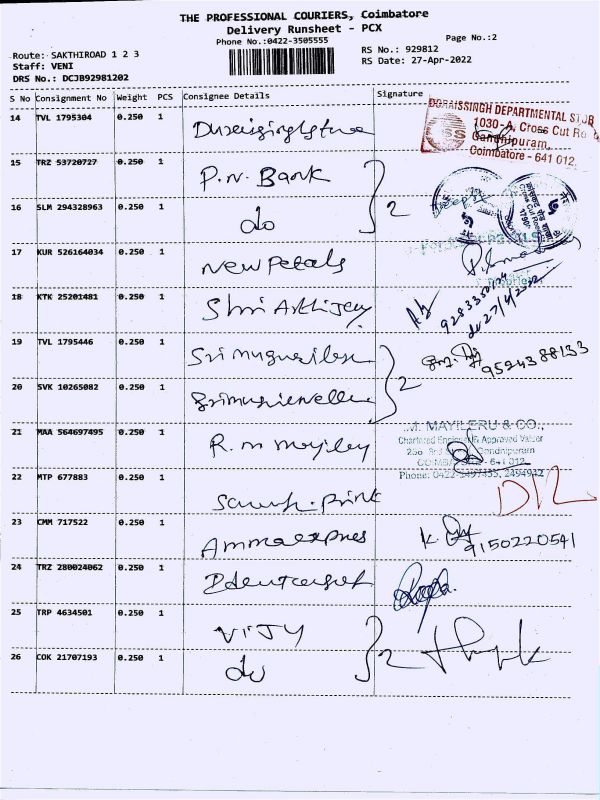 THE PROFESSIONAL COURIERS, Coimbatore
Delivery Runsheet - PCX
Phone No.:0422-3505555
Page No.:2
Route: SAKTHIROAD 1 2 3
Staff: VENI
DRS No.: DCJB92981202
RS No.: 929812
RS Date: 27-Apr-2022
S No Consignment No Weight PCS Consignee Details Signature
14 TVL 1795304 0.250 1
DORAISSINGH DEPARTMENTAL STOR
1030-A, Cross Cut Ro
Gandhipuram,
Coimbatore - 641 012
15 TRZ 53720727 0.250 1 P.N. Bank
16 SLM 294328963 0.250 1 do 2
17 KUR 526164034 0.250 1 New Petals
18 KTK 25201481 0.250 1 Shri
9283350
27/4/2022
19 TVL 1795446 0.250 1 Sri
9524388133
20 SVK 10265082 0.250 1 2
21 MAA 564697495 0.250 1 R. M
M. MAYILERU & CO.,
Chartered Engineer & Approved Valuer
Gandhipuram
641 012
Phone: 0422-2497435, 2494942
22 MTP 677883 0.250 1 Print
23 CMM 717522 0.250 1 Ammaexpres
9150220541
24 TRZ 280024062 0.250 1
25 TRP 4634501 0.250 1 VIJY
26 COK 21707193 0.250 1 do 2